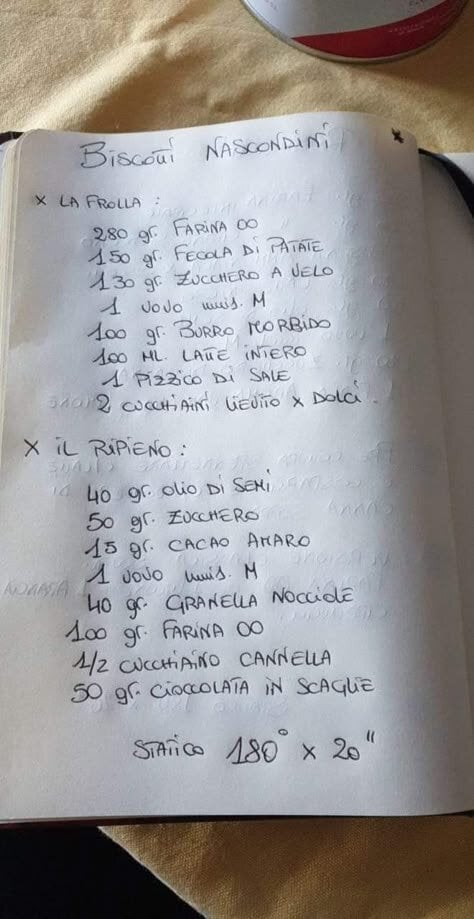 BISCOTTI NASCONDINI
x LA FROLLA :
280 gr. FARINA 00
150 gr. FECOLA DI PATATE
130 gr. ZUCCHERO A VELO
1 UOVO mis. M
100 gr. BURRO MORBIDO
100 ML. LATTE INTERO
1 PIZZICO DI SALE
2 CUCCHIAINI LIEVITO x DOLCI.
X IL RIPIENO :
40 gr. OLIO DI SEMI
50 gr. ZUCCHERO
15 gr. CACAO AMARO
1 UOVO mis. M
40 gr. GRANELLA NOCCIOLE
100 gr. FARINA 00
1/2 CUCCHIAINO CANNELLA
50 gr. CIOCCOLATA IN SCAGLIE
STATICO 180° x 20"